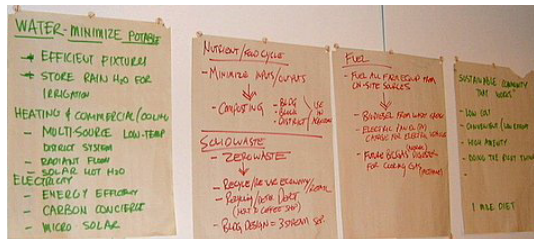 WATER-MINIMIZE POTABLE
→ EFFICIENT FIXTURES
→ STORE RAIN H2O FOR
IRRIGATION
HEATING & COMMERCIAL COOLING
- MULTI-SOURCE LOW-TEMP
DISTRICT SYSTEM
- RADIANT FLOOR
- SOLAR HOT H2O
ELECTRICITY
- ENERGY EFFICIENCY
- CARBON CONCIERGE
- MICRO SOLAR
NUTRIENT/FOOD CYCLE
- MINIMIZE INPUTS/OUTPUTS
- COMPOSTING - BLDG
- BLOCK
- DISTRICT
USE
IN
SOLID WASTE
- ZERO WASTE
- RECYCLE/RE-USE ECONOMY/
- RECYCLING/
(NEXT TO COFFEE SHOP)
- BLDG DESIGN = 3 STREAM SEP.
FUEL
- FUEL ALL FROM
ON-SITE SOURCES
- BIODIESEL FROM WASTE
- ELECTRIC
- FUTURE BIOGAS DIGESTER
FOR
SUSTAINABLE COMMUNITY
THAT WORKS
- LOW COST
- CONVENIENT/
- HIGH
- DOING THE RIGHT THING
1 MILE DIET